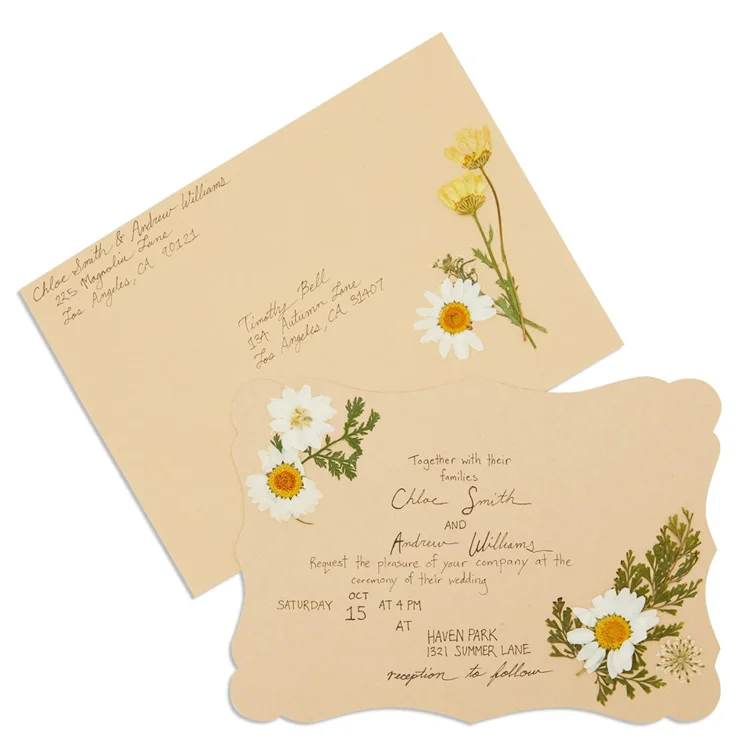 Chloe Smith & Andrew Williams
225 Magnolia Lane
Los Angeles, CA 90121
Timothy Bell
134 Autumn Lane
Los Angeles, CA 31407
Together with their
families
Chloe Smith
AND
Andrew Williams
Request the pleasure of your company at the
ceremony of their wedding
SATURDAY OCT 15 AT 4 PM
AT
HAVEN PARK
1321 SUMMER LANE
reception to follow